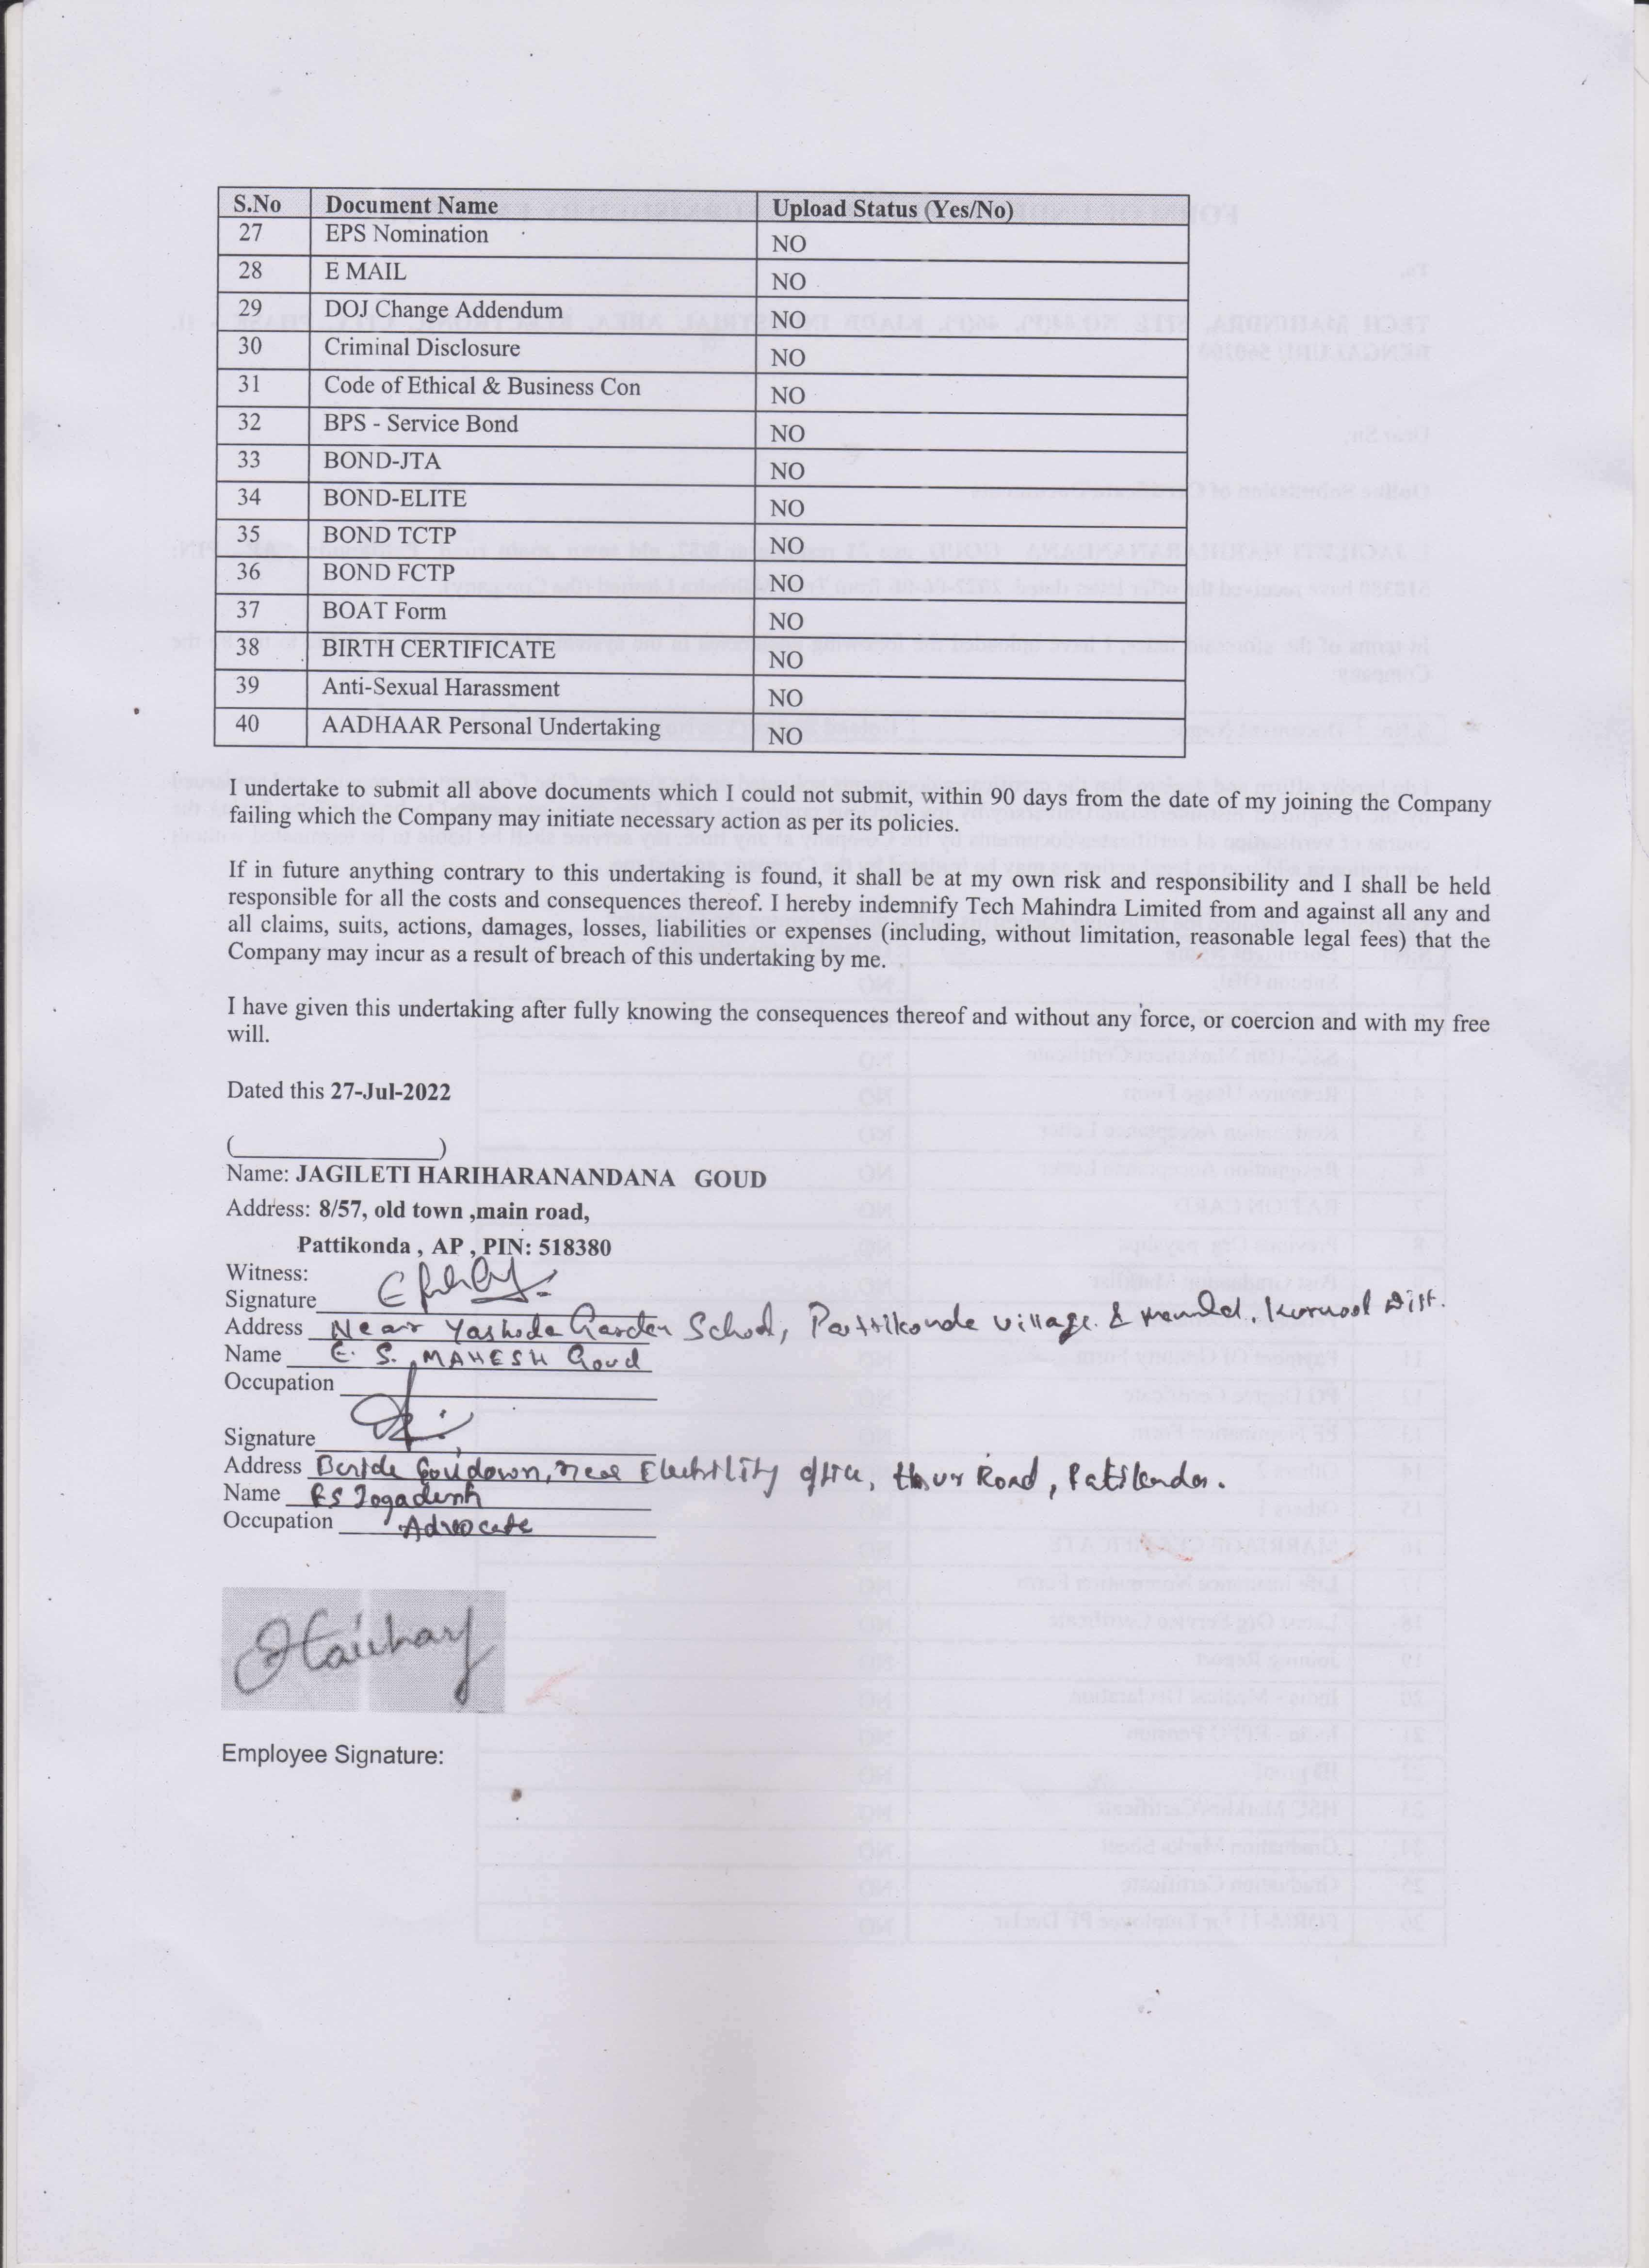 S.No Document Name Upload Status (Yes/No)
27 EPS Nomination NO
28 E MAIL NO
29 DOJ Change Addendum NO
30 Criminal Disclosure NO
31 Code of Ethical & Business Con NO
32 BPS - Service Bond NO
33 BOND-JTA NO
34 BOND-ELITE NO
35 BOND TCTP NO
36 BOND FCTP NO
37 BOAT Form NO
38 BIRTH CERTIFICATE NO
39 Anti-Sexual Harassment NO
40 AADHAAR Personal Undertaking NO
I undertake to submit all above documents which I could not submit, within 90 days from the date of my joining the Company
failing which the Company may initiate necessary action as per its policies.
If in future anything contrary to this undertaking is found, it shall be at my own risk and responsibility and I shall be held
responsible for all the costs and consequences thereof. I hereby indemnify Tech Mahindra Limited from and against all any and
all claims, suits, actions, damages, losses, liabilities or expenses (including, without limitation, reasonable legal fees) that the
Company may incur as a result of breach of this undertaking by me.
I have given this undertaking after fully knowing the consequences thereof and without any force, or coercion and with my free
will.
Dated this 27-Jul-2022
(__________________)
Name: JAGILETI HARIHARANANDANA GOUD
Address: 8/57, old town ,main road,
Pattikonda , AP , PIN: 518380
Witness:
Signature
Address Near Yashoda Garden School, Pattikonda village & Kurnool Dist.
Name E. S. MAHESH Goud
Occupation
Signature
Address Beside near Road,
Name
Occupation Advocate
Employee Signature: